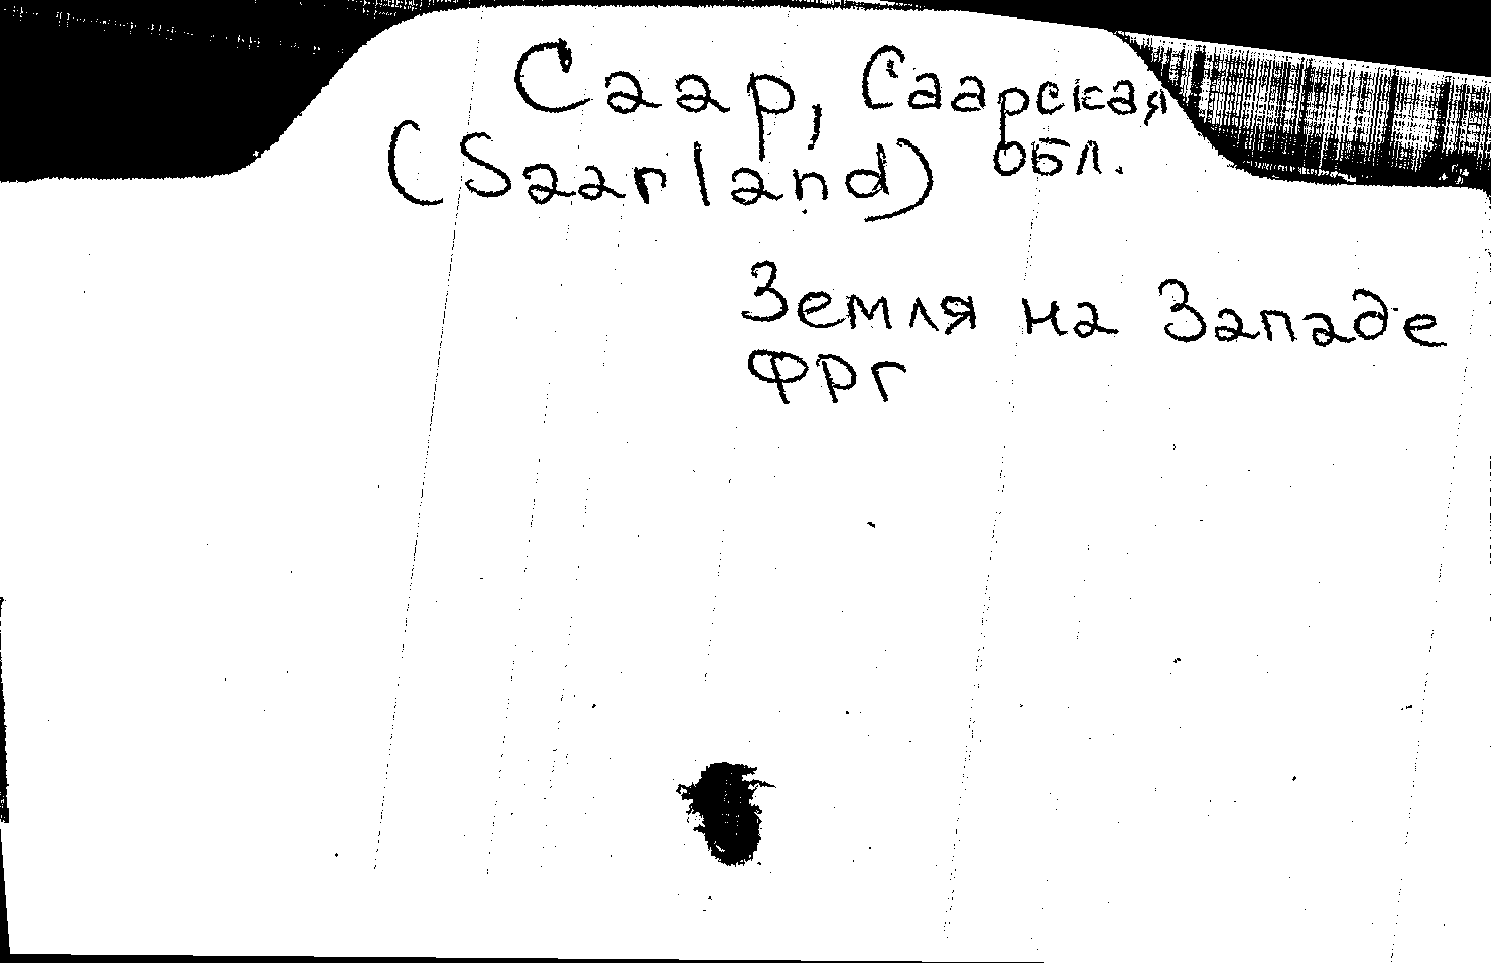 Саар, Саарская обл.
(Saarland)
Земля на Западе
ФРГ